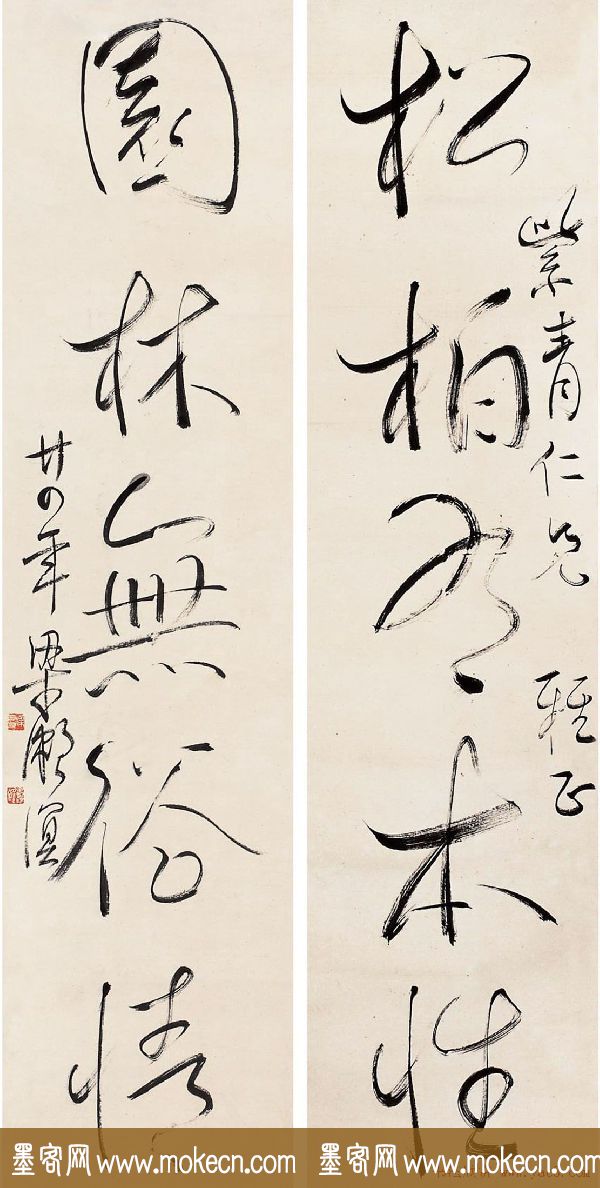 紫青仁兄 雅正
松柏有本性
園林無俗情
廿四年 梁漱溟
墨客网 www.mokecn.com
墨客网 www.mokecn.com